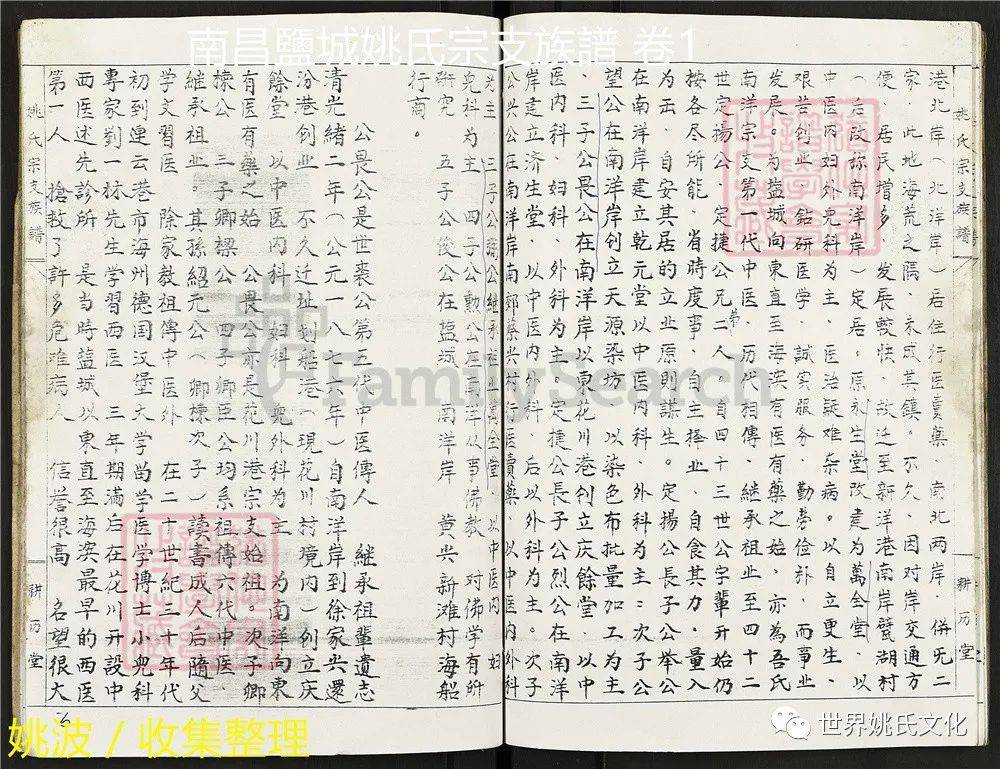 南昌鹽城姚氏宗支族譜 卷1
姚氏宗支族譜
耕历堂
港北岸(北洋岸)居住行医賣藥 南北两岸 併旡二
家 此地海荒之隔 未成其鎮。不久、因对岸交通方
便、居民增多、发展較快、故迁至新洋港南岸甓湖村
(后改称南洋岸)定居。原永生堂改建为萬全堂、以
中医内妇外兒科为主、医治疑难杂病。以自立更生、
艰苦创业、鉆研医学 誠实服务、勤劳俭朴、而事业
发展。为盐城向東直至海滨有医有藥之始 亦為吾氏
南洋宗支第一代中医、历代相傳、継承祖业至四十二
世定揚公、定捷公兄弟二人。自四十三世公字輩开始仍
按各尽所能、省時度事、自主择业、自食其力、量入
为出、自安其居的立业原則謀生。定揚公長子公举公
在南洋岸建立乾元堂以中医内科、外科为主：次子公
望公在南洋岸创立天源染坊 以染色布批量加工为主
、三子公畏公在南洋岸以東花川港创立庆餘堂、以中
医内科、妇科、外科为主。定捷公長子公烈公在南洋
岸建立济生堂、以中医内外科、后以外科为主。次子
公兴公在南洋岸南郊蔡尖村、行医賣藥、以中医内外科
为主 三子公 公継承祖业萬全堂、以中医内 妇
兒科为主 四子公勲公在南洋从事佛教 对佛学有所
研究 五子公俊公在盐城 南洋岸 黄尖新滩村海船
行商。
公畏公是世裘公第五代中医傳人 継承祖輩遺志
清光緒二年(公元一八七六年)自南洋岸到徐家尖還
汾港创业 不久迁址划船港(現花川村境内)创立庆
餘堂 以中医内科 妇科 兒外科为主 为南洋向東
有医有藥之始 公畏公亦是花川港宗支始祖。次子卿
榡公 三子卿樑公 四子卿臣公均系祖傳六代中医、
継承祖业。其孫紹元公(卿榡次子)讀書成人后隨父
学文習医 除家教祖傳中医外 在二十世紀三十年代
初到連云港市海州德国汉堡大学留学医学博士小兒科
專家劉一林先生学習西医 三年期滿后在花川开設中
西医述先診所 是当時盐城以東直至海滨最早的西医
第一人 搶救了許多危难病人 信誉很高 名望很大
姚氏宗支族譜
耕历堂
FamilySearch
姚波/收集整理
世界姚氏文化